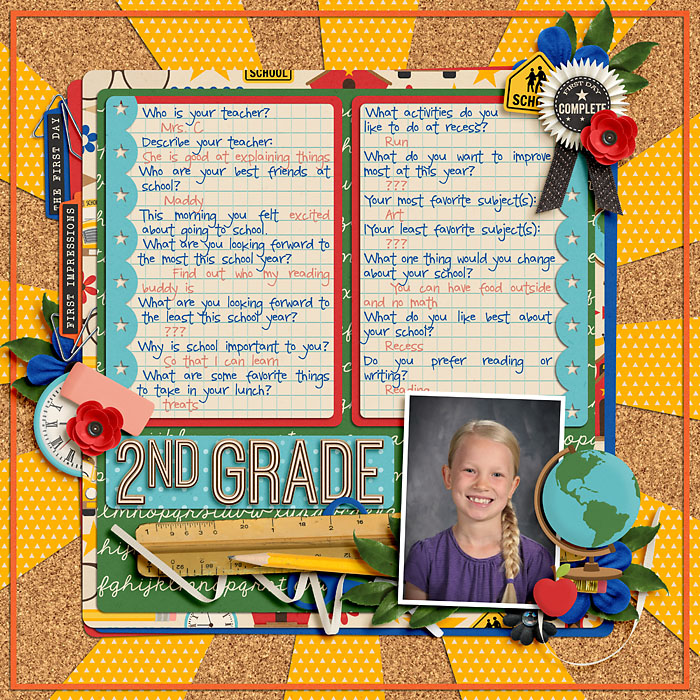 SCHOOL
THE FIRST DAY
FIRST IMPRESSIONS
Who is your teacher?
Mrs. C
Describe your teacher:
She is good at explaining things
Who are your best friends at
school?
Naddy
This morning you felt excited
about going to school.
What are you looking forward to
the most this school year?
Find out who my reading
buddy is
What are you looking forward to
the least this school year?
???
Why is school important to you?
So that I can learn
What are some favorite things
to take in your lunch?
treats
What activities do you
like to do at recess?
Run
What do you want to improve
most at this year?
???
Your most favorite subject(s):
Art
Your least favorite subject(s):
???
What one thing would you change
about your school?
You can have food outside
and no math
What do you like best about
your school?
Recess
Do you prefer reading or
writing?
Reading
SCHO
FIRST DAY
COMPLETE
2ND GRADE
lmnopqrstuvwxyz
fghijklmnopqrst